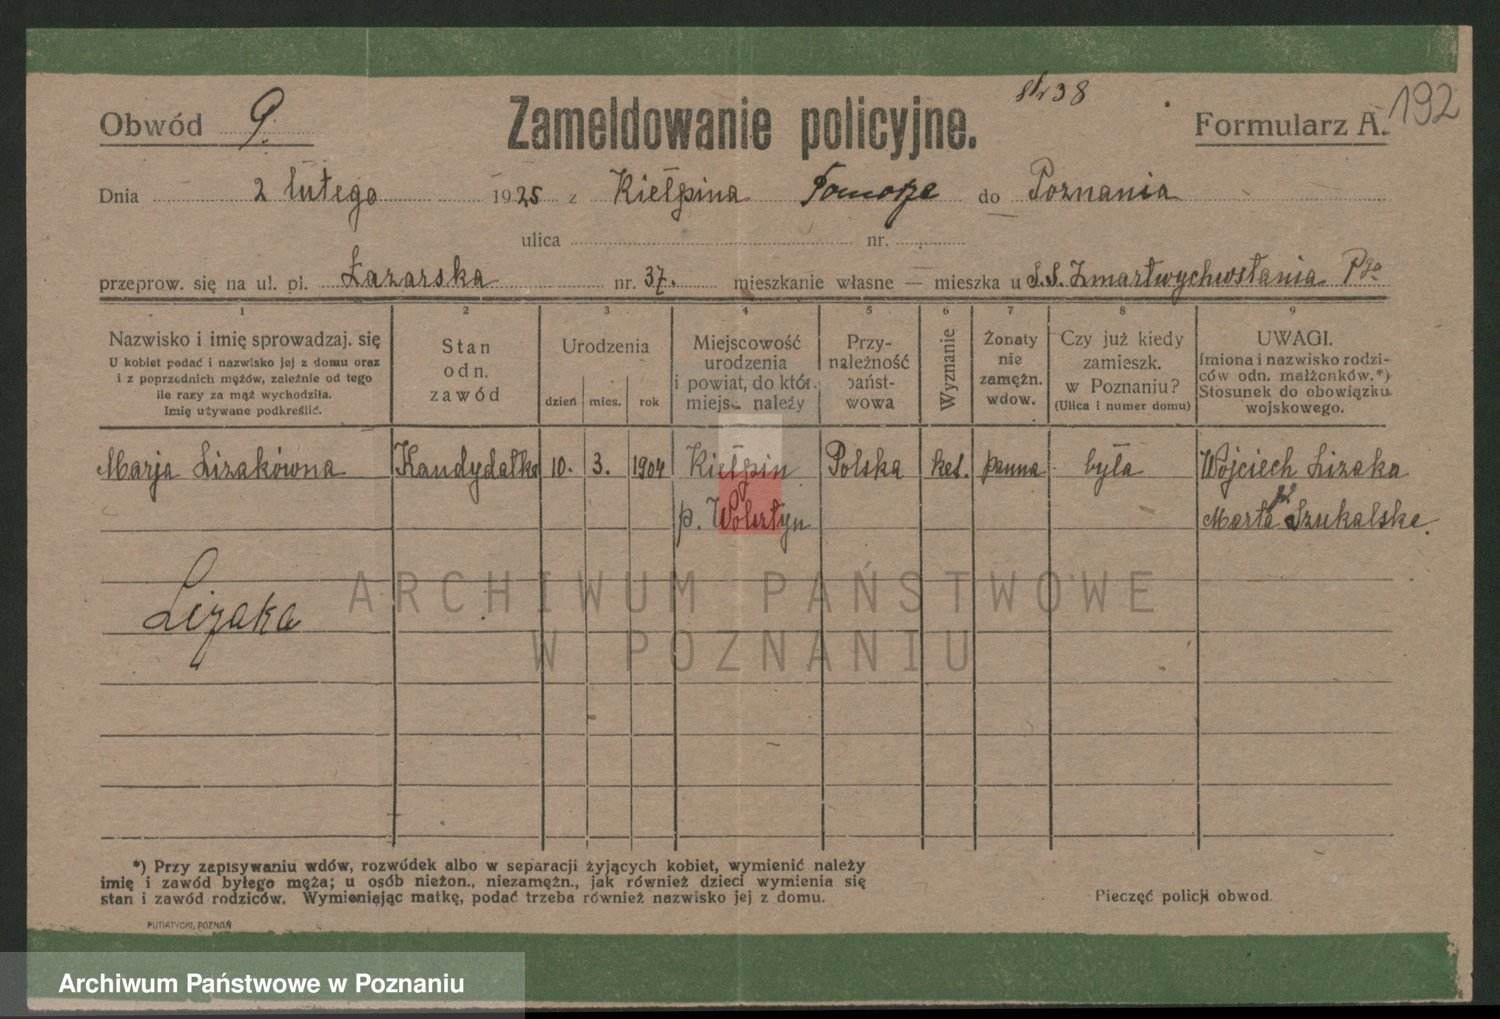 Obwód 9. Zameldowanie policyjne. Formularz A. 192
Dnia 2 lutego 1925 z Kiełpina do Poznania
ulica nr.
przeprow. się na ul. pl. Łazarska nr. 37. mieszkanie własne — mieszka u S.S. Zmartwychwstania
1 2 3 4 5 6 7 8 9
Nazwisko i imię sprowadzaj. się
U kobiet podać i nazwisko jej z domu oraz
i z poprzednich mężów, zależnie od tego
ile razy za mąż wychodziła.
Imię używane podkreślić.
Stan
odn.
zawód
Urodzenia
dzień mies. rok
Miejscowość
urodzenia
i powiat, do któr.
miejs. należy
Przy-
należność
państ-
wowa
Wyznanie
Żonaty
nie
zamężn.
wdow.
Czy już kiedy
zamieszk.
w Poznaniu?
(Ulica i numer domu)
UWAGI.
Imiona i nazwisko rodzi-
ców odn. małżonków.*)
Stosunek do obowiązku
wojskowego.
Marja Lizakówna Kandydatka 10. 3. 1904 Kiełpin Polska kat. panna była Wojciech Lizaka
p. Wolsztyn Marta Szukalska.
Lizaka
ARCHIWUM PAŃSTWOWE
W POZNANIU
*) Przy zapisywaniu wdów, rozwódek albo w separacji żyjących kobiet, wymienić należy
imię i zawód byłego męża; u osób nieżon., niezamężn., jak również dzieci wymienia się
stan i zawód rodziców. Wymieniając matkę, podać trzeba również nazwisko jej z domu.
Pieczęć policji obwod.
PUTIATYCKI, POZNAŃ
Archiwum Państwowe w Poznaniu